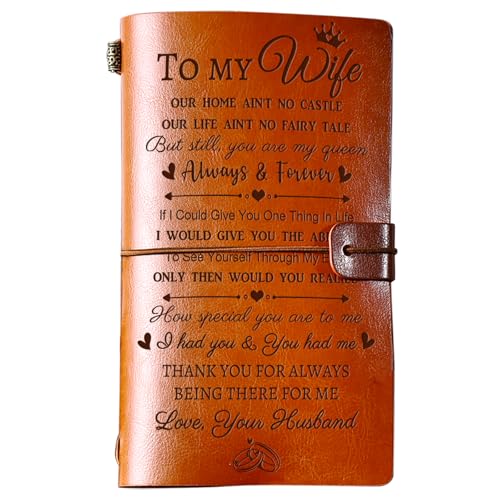 TO MY Wife
OUR HOME AINT NO CASTLE
OUR LIFE AIN'T NO FAIRY TALE
But still, you are my queen
Always & Forever
If I Could Give You One Thing In Life
I WOULD GIVE YOU THE
To See Yourself Through My
ONLY THEN WOULD YOU
How special you are to me
I had you & You had me
THANK YOU FOR ALWAYS
BEING THERE FOR ME
Love, Your Husband